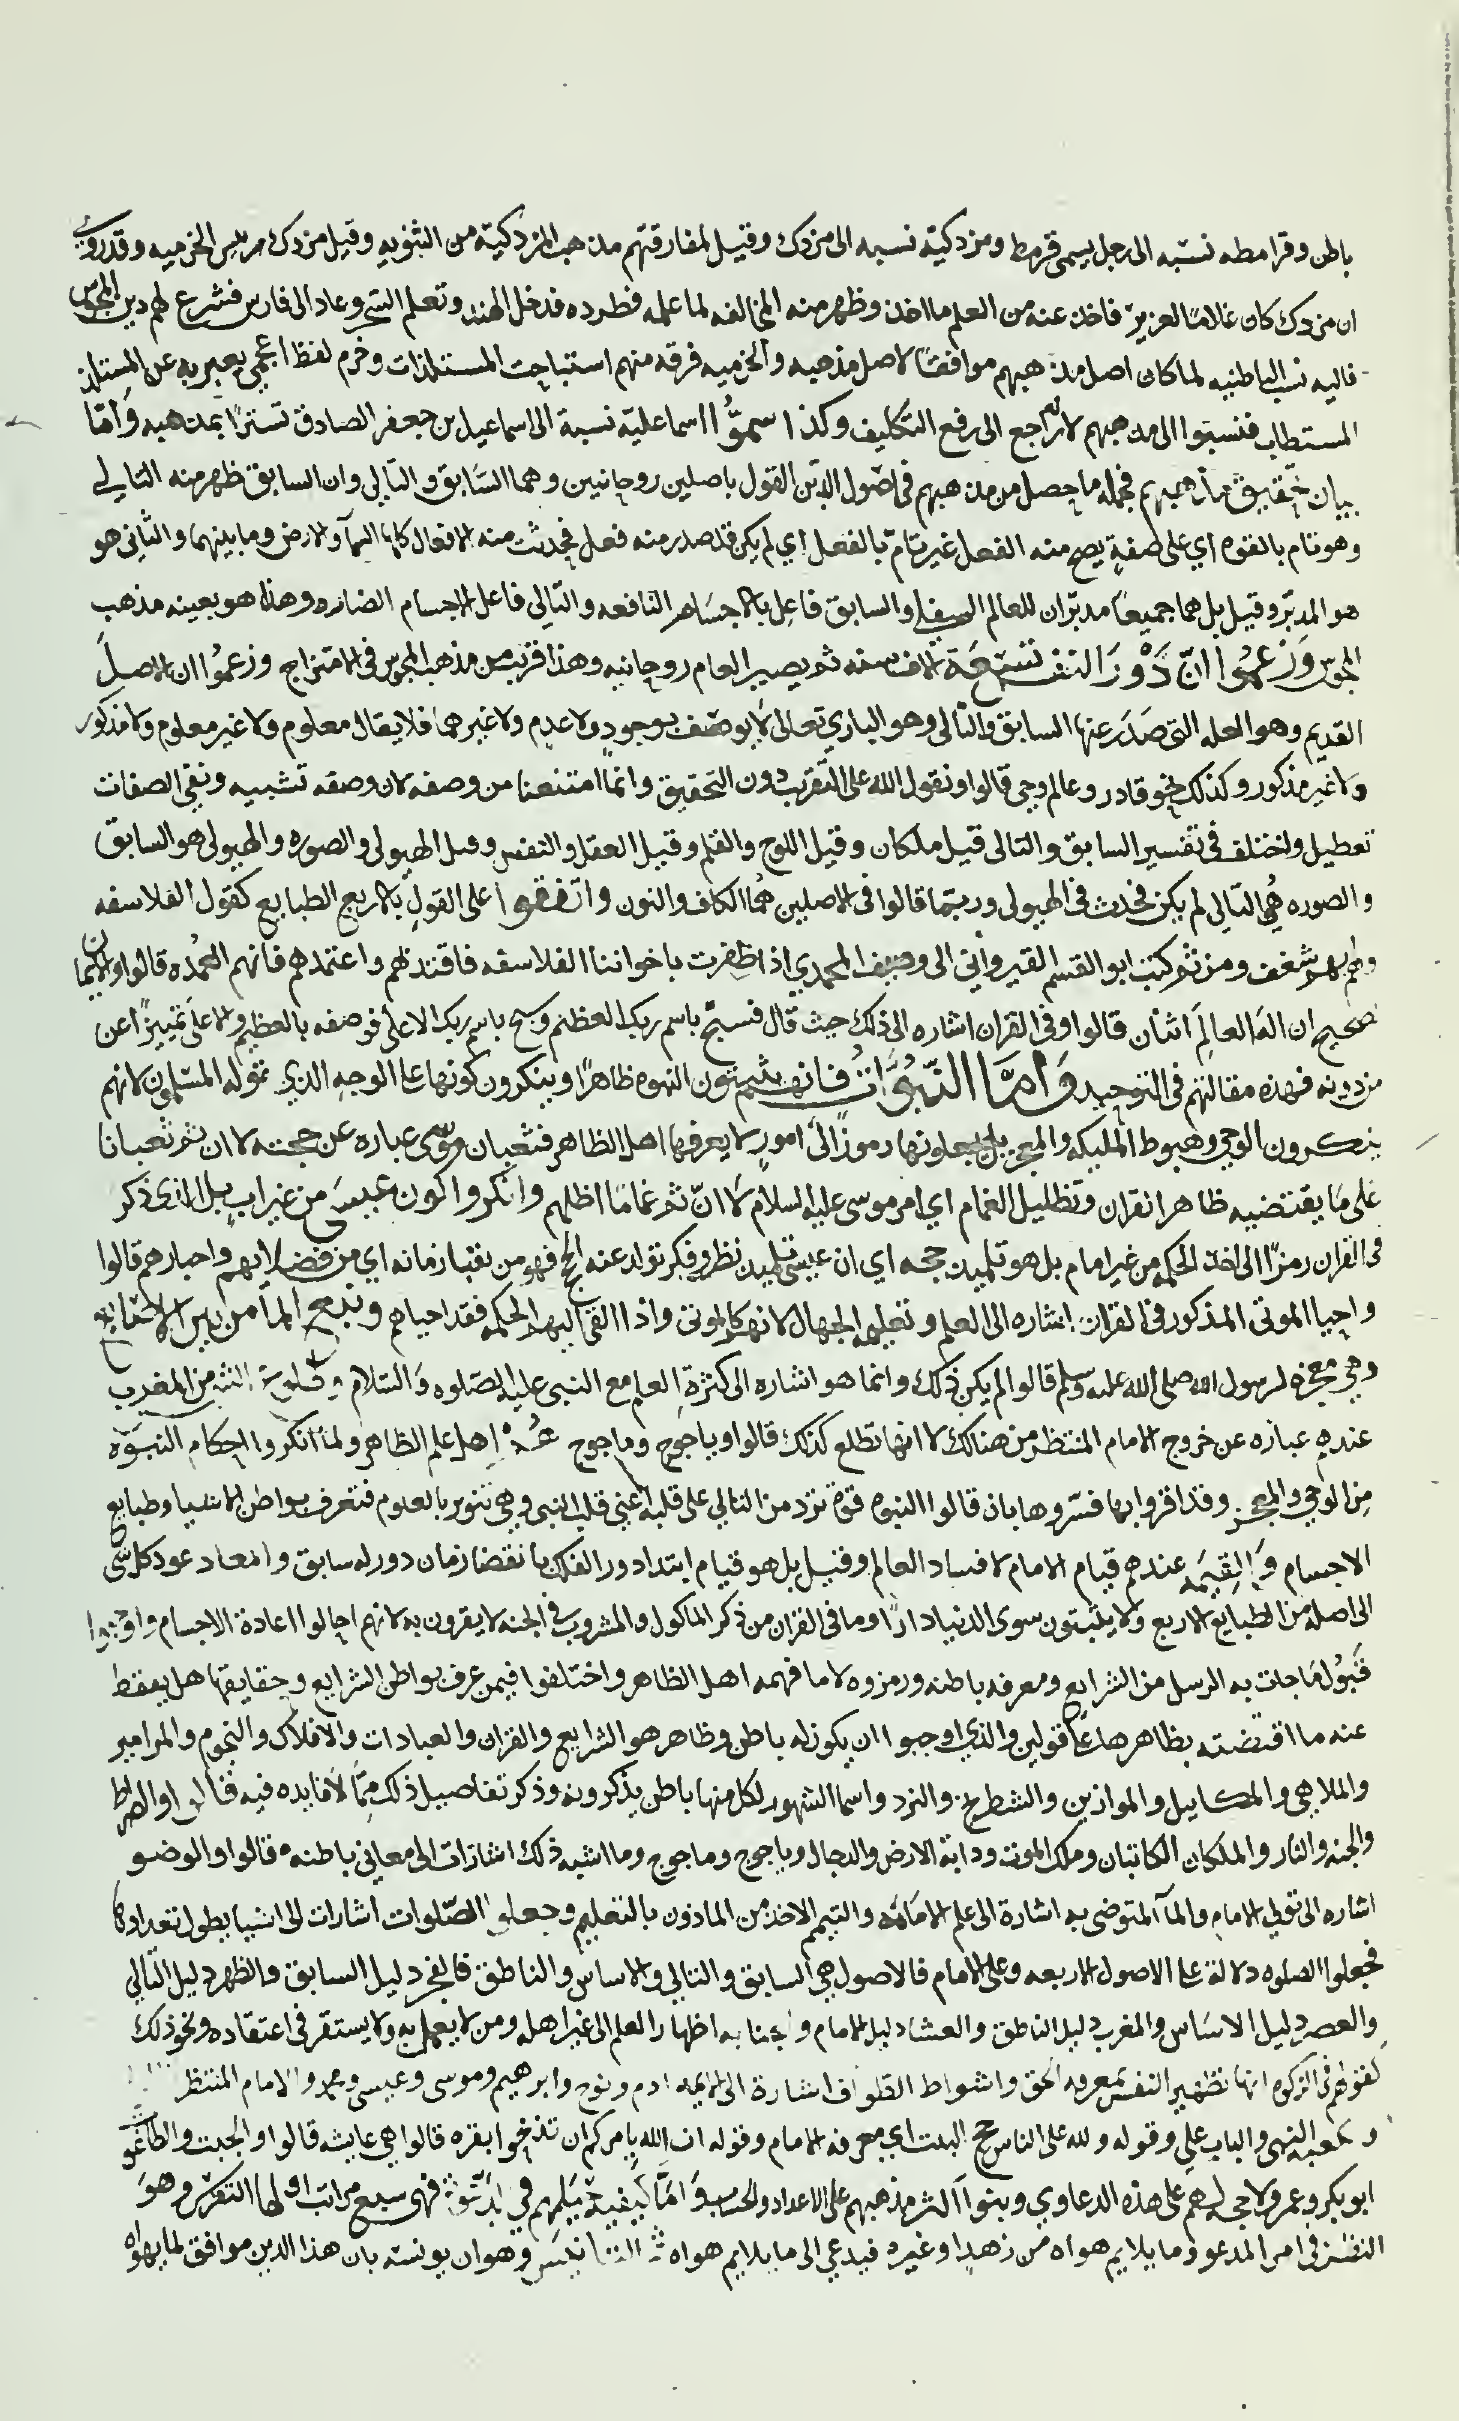 باطن وقرامطه نسبه الى رجل يسمى قرمط ومزدكية نسبه الى مزدك وقيل لمفارقتهم مذهب المزدكية من الثنويه وقيل مزدك هو رييس الخرميه وقد روي
ان مزدك كان غلامًا لعزير فاخذ عنه من العلم ما اخذ وظهر منه المخالفه لما علمه فطرده فدخل الهند وتعلم السحر وعاد الى فارس فشرع لهم دين المجوس
فاليه نسب الباطنيه لما كان اصل مذهبهم موافقًا لاصل مذهبه والخرميه فرقه منهم استباحت المستلذات وخرم لفظ اعجمي يعبر به عن المستلذ
المستطاب فنسبوا الى مذهبهم لانه راجع الى رفع التكليف وكذا سموا اسماعلية نسبة الى اسماعيل بن جعفر الصادق تسترًا بمذهبه وامّا
بيان تحقيق مذاهبهم فجمله ما حصل من مذهبهم في اصول الدين القول باصلين روحانيين وهما السابق والتالي وان السابق ظهر منه التالي
وهو تام بالقوه اي على صفةٍ يصح منه الفعل غير تام بالفعل اي لم يكن قد صدر منه فعل فحدثت منه الافعال كلها السمآ والارض وما بينهما والثاني هو
هو المدبر وقيل بل هما جميعًا مدبران للعالم السفلي والسابق فاعل بالاجسام النافعه والتالي فاعل الاجسام الضاره وهذا هو بعينه مذهب
المجوس وزعموا انّ دور تسعة الاف سنه ثم يصير العام روحانيه وهذا قريب من مذهب المجوس في الامتزاج وزعموا ان الاصل
القديم وهو العله التي صدر عنها السابق والتالي وهو الباري تعالى لا يوصف بوجود ولا عدم ولا غيرهما فلا يقال معلوم ولا غير معلوم ولا مذكور
ولا غير مذكور وكذلك نحو قادر وعالم وحي قالوا ونقول الله على التقريب دون التحقيق وانما امتنعنا من وصفه لان وصفه تشبيه ونفي الصفات
تعطيل واختلف في تفسير السابق والتالي قيل ملكان وقيل اللوح والقلم وقيل العقل والنفس وقيل الهيولى والصوره والهيولى هو السابق
والصوره هي التالي لم يكن فحدث في الهيولى وربما قالوا في الاصلين هما الكاف والنون واتفقوا على القول بالاربع الطبايع كقول الفلاسفه
ولهم بهم شغف ومن ثم كتب ابو القسم القيرواني الى وصيف المحمدي اذا ظفرت باخواننا الفلاسفه فاقتد بهم واعتمدهم فانهم العمده قالوا والايمان
صحيح ان اله العالم اثنان قالوا وفي القران اشاره الى ذلك حيث قال فسبح باسم ربك العظيم وسبح باسم ربك الاعلى فوصفه بالعظيم والاعلى تمييزًا عن
من دونه فهذه مقالتهم في التوحيد وامّا النّبوّات فانهم يثبتون النبوه ظاهرًا وينكرون كونها على الوجه الذي تقوله المسلمون لانهم
ينكرون الوحي وهبوط المليكه والمعجز بل يجعلونها رموزًا الى امور لا يعرفها اهل الظاهر فثعبان موسى عباره عن حجته لا ان ثم ثعبانا
على ما يقتضيه ظاهر القران وتظليل الغمام اي امر موسى عليه السلام لا انّ ثم غمامًا اظلهم وانكروا كون عيسى من غير اب بل الذي ذكر
في القران رمزًا الى اخذ الحكمه من غير امام بل هو تلميذ حجه اي ان عيسى تلميذ نظر وفكر تولد عنه الخ فهو من نقبا زمانه اي من فضلايهم واحبارهم قالوا
واحيا الموتى المذكور في القران اشاره الى العلم وتعليمه الجهال لانهم كالموتى واذا القي اليهم الحكمه فقد احياهم ونبع المآ من بين الاصابع
وهي معجزه لرسول الله صلى الله عليه وسلم قالوا لم يكن ذلك وانما هو اشاره الى كثرة العلم مع النبي عليه الصلوه والسلام وطلوع الشمس من المغرب
عندهم عباره عن خروج الامام المنتظر من هنالك لا انها تطلع كذلك قالوا وياجوج وماجوج هم اهل علم الظاهر ولما انكروا احكام النبوّه
من الوحي والمعجز وقد اقروا بها فسروها بان قالوا النبوه قوة ترد من التالي على قلبه اعني قلب النبي وهي تنوير بالعلوم فتعرف بواطن الاشيا وطبايع
الاجسام والقيمه عندهم قيام الامام لا فساد العالم وقيل بل هو قيام ابتدا دور الفلك بانقضا زمان دور له سابق والمعاد عود كل شي
الى اصله من الطبايع الاربع ولا يثبتون سوى الدنيا دارًا وما في القران من ذكر الماكول والمشروب في الجنه لا يقرون به لانهم احالوا اعادة الاجسام واوجبوا
قبول ما جات به الرسل من الشرايع ومعرفه باطنه ورموزه لا ما فهمه اهل الظاهر واختلفوا فيمن عرف بواطن الشرايع وحقايقها هل يسقط
عنه ما اقتضته بظاهرها على قولين والذي اوجبوا ان يكون له باطن وظاهر هو الشرايع والقران والعبادات والافلاك والنجوم والمزامير
والملاهي والمكاييل والموازين والشطرنج والنرد واسما الشهور لكل منها باطن يذكرونه وذكر تفاصيل ذلك ممّا لا فايده فيه قالوا والصراط
والجنه والنار والملكان الكاتبان وملك الموت ودابة الارض والدجال وياجوج وماجوج وما اشبه ذلك اشارات الى معاني باطنه قالوا والوضو
اشاره الى تولي الامام والمآ المتوضى به اشارة الى علم الامامه والتيمم الاخذ من الماذون بالتعليم وجعلوا الصلوات اشارات الى اشيا يطول تعدادها
فجعلوا الصلوه دلالة على الاصول الاربعه وعلى الامام فالاصول هي السابق والتالي والاساس والناطق فالفجر دليل السابق والظهر دليل التالي
والعصر دليل الاساس والمغرب دليل الناطق والعشا دليل الامام والجنابه اظهار العلم الى غير اهله ومن لا يعمل به ولا يستقر في اعتقاده ونحو ذلك
كقولهم في الزكوه انها تطهير النفس بمعرفه الحق واشواط الطواف اشارة الى الايمه ادم ونوح وابرهيم وموسى وعيسى ومحمد والامام المنتظر
والكعبه النبي والباب علي وقوله ولله على الناس حج البيت اي معرفه الامام وقوله ان الله يامركم ان تذبحوا بقره قالوا هي عايشه قالوا والجبت والطاغوت
ابو بكر وعمر ولا حجه لهم على هذه الدعاوي وبنوا اكثر مذهبهم على الاعداد والحساب وامّا كيفية حيلهم في الدعوة فهي سبع مراتب اولها التفرس وهو
التفرس في امر المدعو وما يلايم هواه من زهد او غيره فيدعى الى ما يلايم هواه ثم التانيس وهو ان يونسه بان هذا الدين موافق لما يهواه